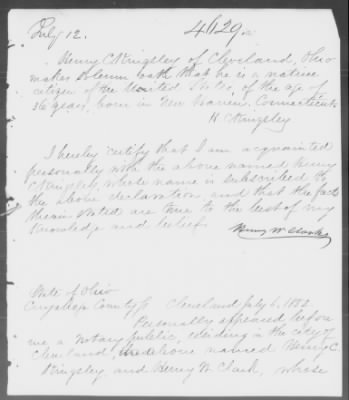 July 12.
4629
Henry C Kingsley of Cleveland, Ohio
makes solemn oath that he is a native
citizen of the United States, of the age of
36 years, born in New Haven, Connecticut
H C Kingsley
I hereby certify that I am acquainted
personally with the above named Henry
C Kingsley, whose name is subscribed to
the above declaration, and that the facts
therein stated are true to the best of my
knowledge and belief.
Henry W Clark
State of Ohio
Cuyahoga County Cleveland July 6. 1852
Personally appeared before
me a Notary public, residing in the city of
Cleveland, the above named Henry C.
Kingsley and Henry W. Clark, whose